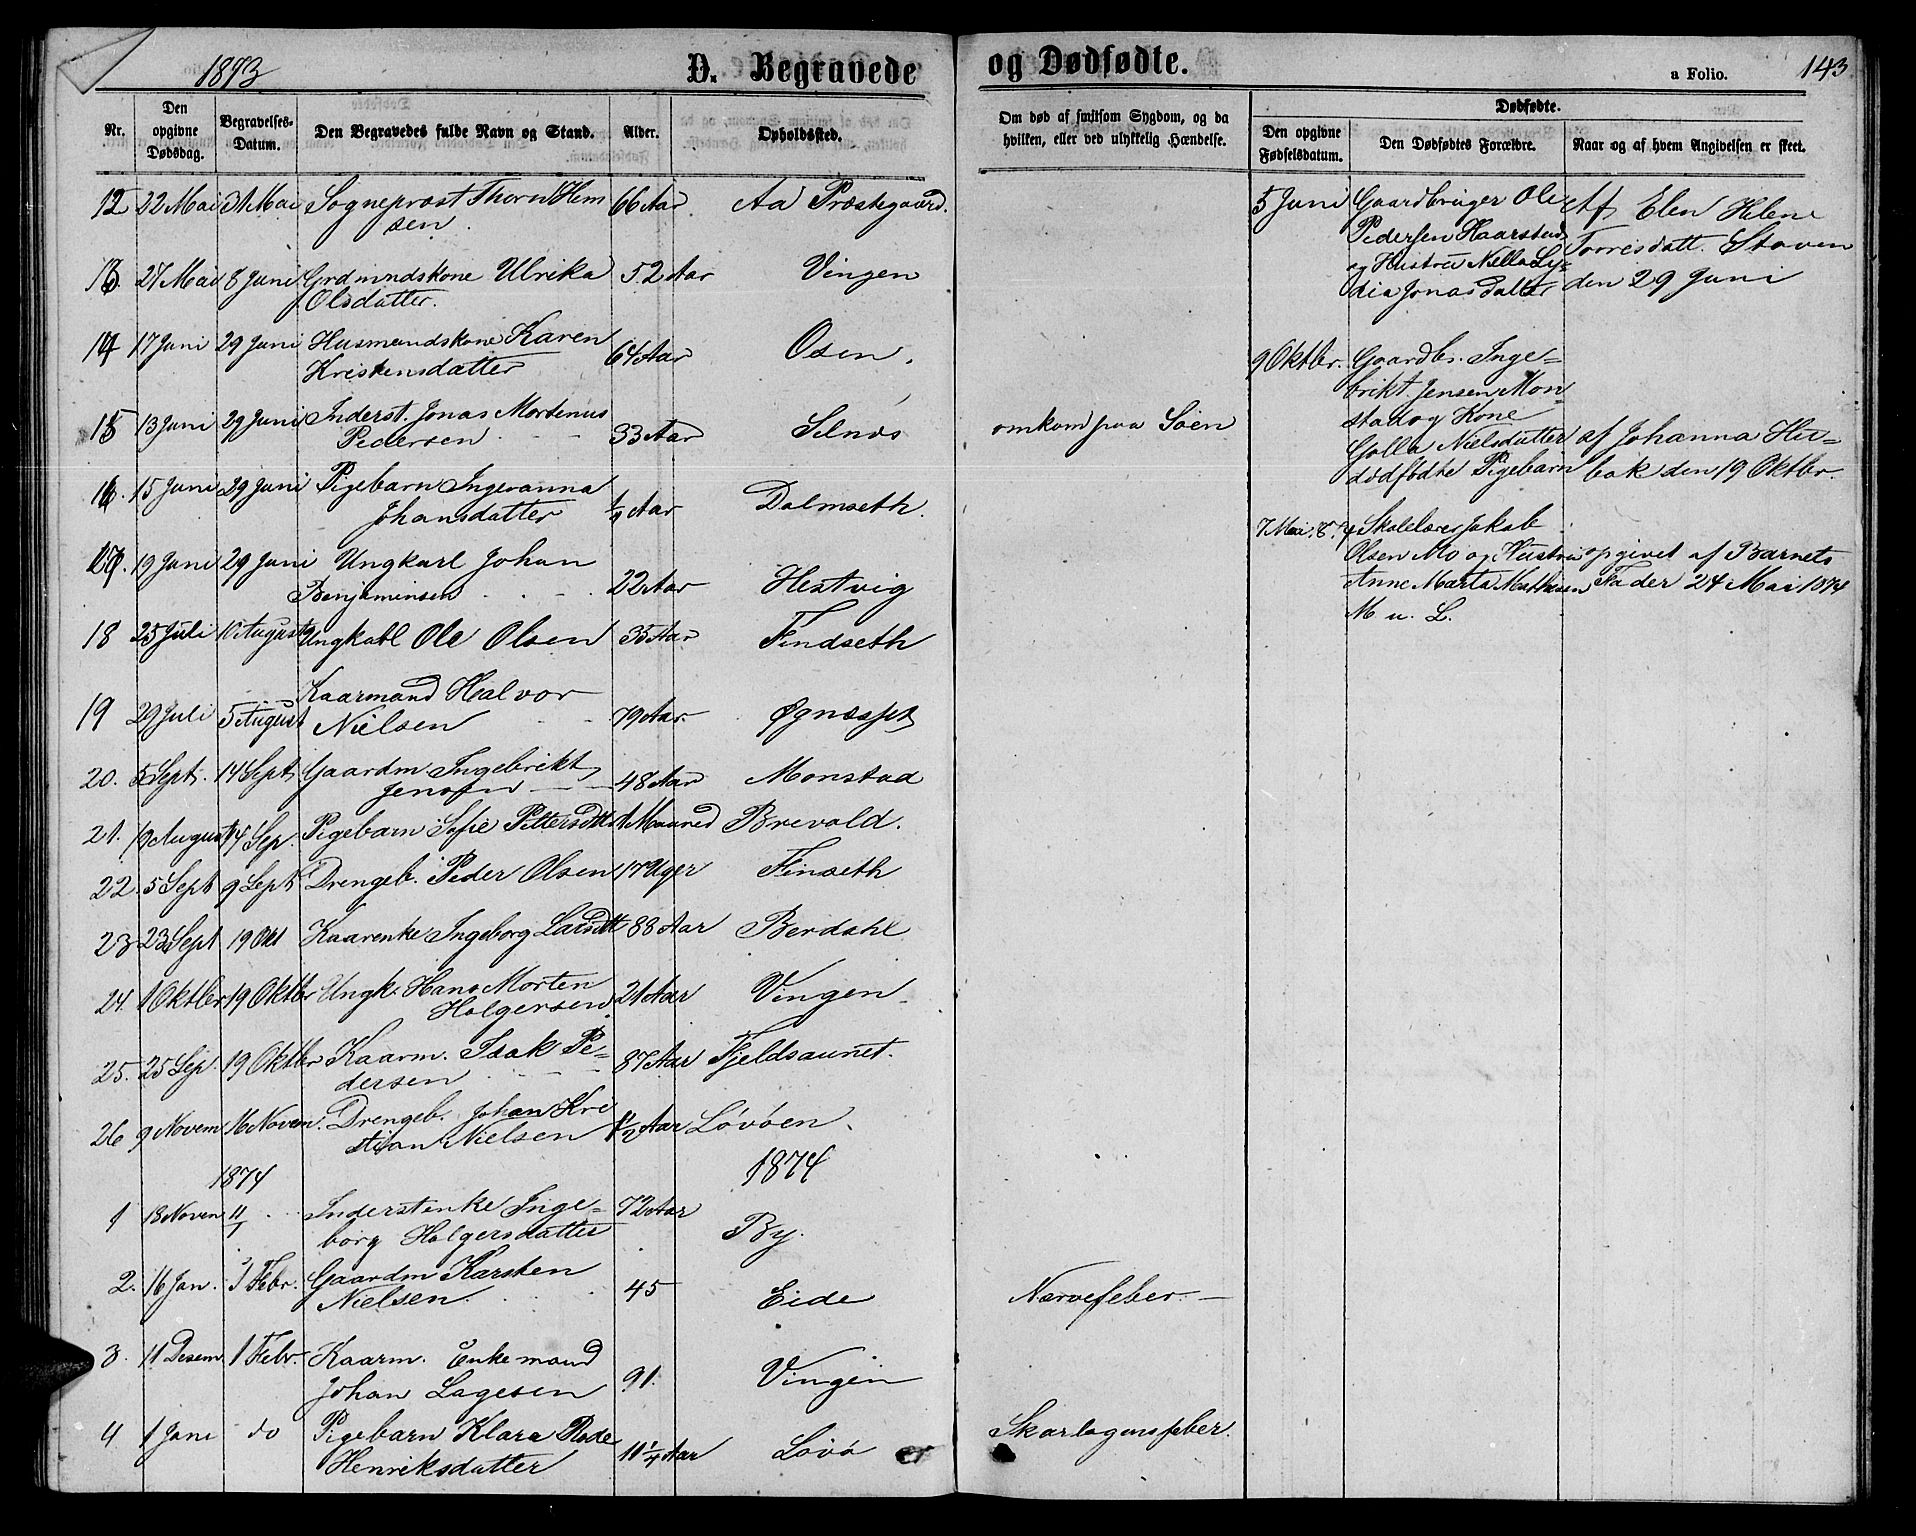 1873
D. Begravede og Dødfødte.
a Folio. 143
Nr.
Den opgivne Dødsdag.
Begravelses-Datum.
Den Begravedes fulde Navn og Stand.
Alder.
Opholdssted.
Om død af smitsom Sygdom, og da hvilken, eller ved ulykkelig Hændelse.
Dødfødte.
Den opgivne Fødselsdatum.
Den Dødfødtes Forældre.
Naar og af hvem Angivelsen er skeet.
12 22 Mai 31 Mai Sogneprost Thorn Hem 66 Aar Aa Præstegaard.
sen.
13. 27 Mai 8 Juni Grdmndskone Ulrika 52 Aar Vingen
Olsdatter.
14 17 Juni 29 Juni Husmandskone Karen 64 Aar Osen.
Kristensdatter
15 13 Juni 29 Juni Inderst. Jonas Mortenus 33 Aar Selnæs omkom paa Søen
Pedersen
16. 15 Juni 29 Juni Pigebarn Ingeranna 1/4 Aar Dalmseth.
Johansdatter
17. 19 Juni 29 Juni Ungkarl Johan 22 Aar Hestvig
Benjaminsen
18 25 Juli 10 August Ungkarl Ole Olsen 35 Aar Findseth
19 29 Juli 5 August Kaarmand Halvor 79 Aar
Nielsen
20. 5 Sept. 14 Sept Gaardm Ingebrikt 48 Aar Monstad
Jensen
21. 19 August 14 Sep. Pigebarn Sofie Pettersdtt 1 Maaned Brevold.
22. 5 Sept 9 Sept Drengeb. Peder Olsen 17 Uger Finseth
23 23 Sept 19 Okt Kaarenke Ingeborg Larsdtt 88 Aar Berdahl
24. 1 Oktber 19 Oktbr Ungk. Hans Morten 21 Aar Vingen
Holgersen
25. 25 Sep. 19 Oktbr Kaarm. Isak Pe- 87 Aar Fjeldsaunet.
dersen
26 9 Novem 16 Novem. Drengeb. Johan Kri 1/2 Aar Løvøen.
stian Nielsen
1874 1874
1 18 Noven 11/1 Inderstenke Inge- 72 Aar By.
borg Holgersdatter
2. 16 Jan. 1 Febr. Gaardm Karsten 45 Eide Nærvefeber.
Nielsen.
3. 11 Desem 1 Febr. Kaarm. Enkemand 91. Vingen
Johan Lagesen
4 1 Jani do Pigebarn Klara 11 1/4 Aar Løvø Skarlagensfeber.
Henriksdatter
5 Juni Gaardbruger Ole Af Elen Helene
Pedersen Haarstad Torrisdatt. Stoven
og Hustru Nella Ly- den 29 Juni
dia Jonasdatter
9 Oktbr. Gaardbr. Inge-
brikt Jensen Mon
stad og Kone
Golla Nielsdatter af Johanna Hu-
dødfødte Pigebarn bak den 19 Oktbr.
7 Mai Skolelærer Jakob
Olsen Mo og Hustru opgivet af Barnets
Anne Marta Mathisen Fader 24 Mai 1874
M u. L.